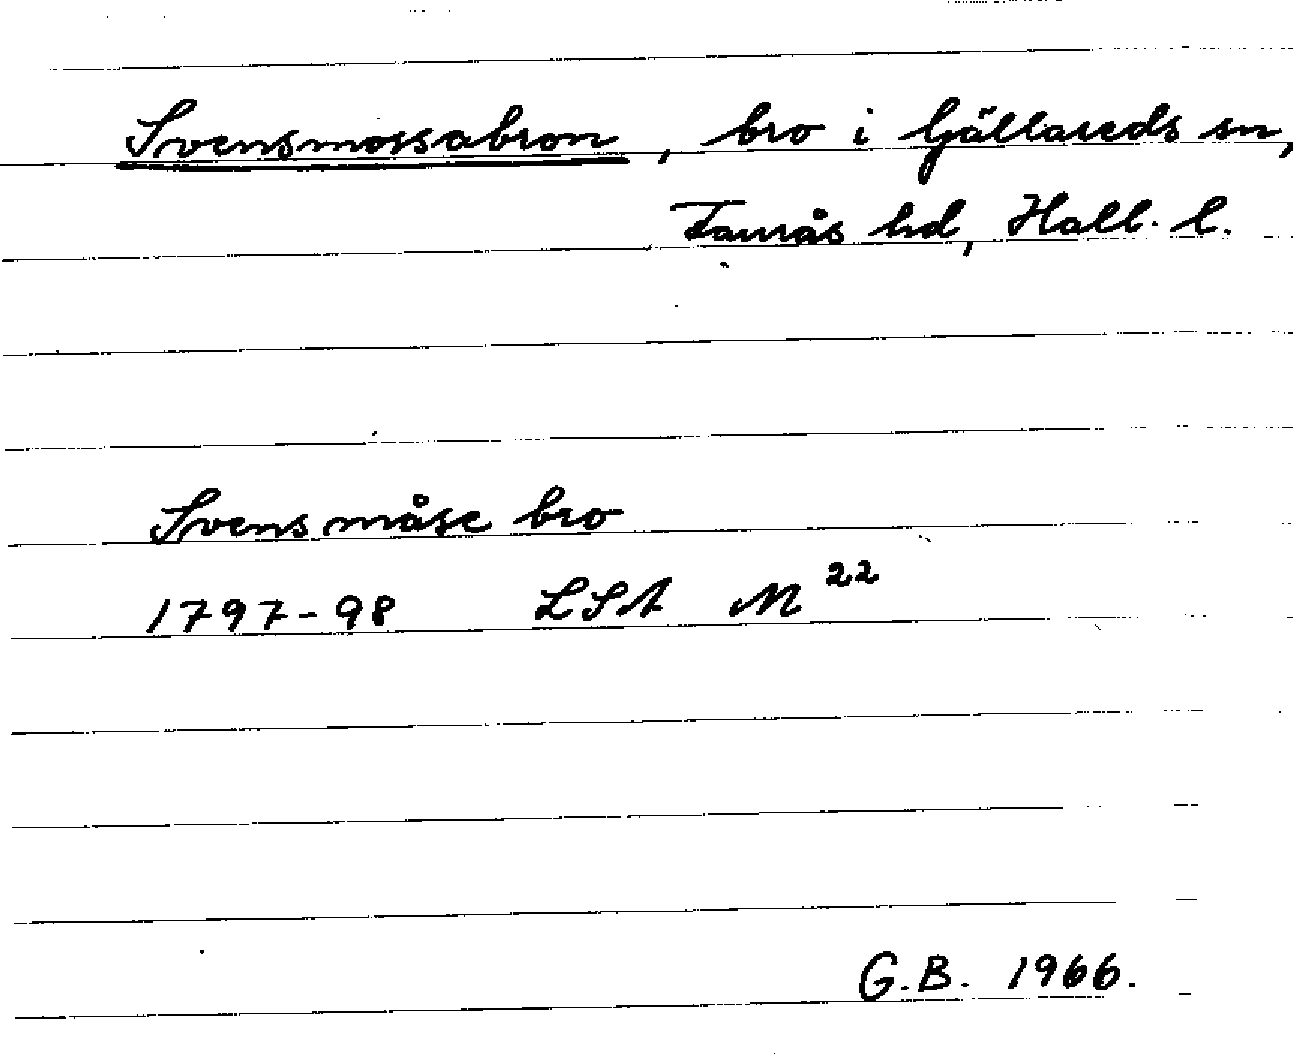 Svensmossabron, bro i Gällareds sn,
Faurås hd, Hall. l.
Svens måse bro
1797-98 LSA M 22
G.B. 1966.